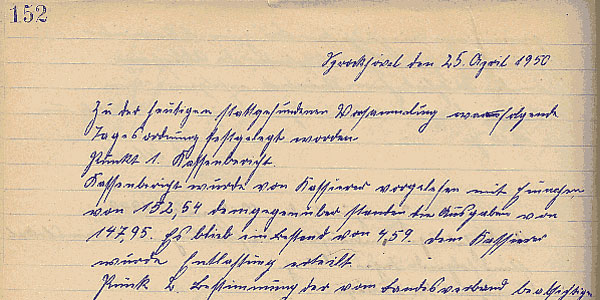 152
Sprockhövel den 25. April 1950
Zu der heutigen stattgefundenen Versammlung war folgende
Tagesordnung festgelegt worden
Punkt 1. Kassenbericht.
Kassenbericht wurde von Kassierer vorgelesen mit Einnahmen
von 152,54 demgegenüber standen die Ausgaben von
147,95. Es blieb ein Bestand von 4,59. dem Kassierer
wurde Entlastung erteilt
Punk 2. Bestimmung der vom Landesverband